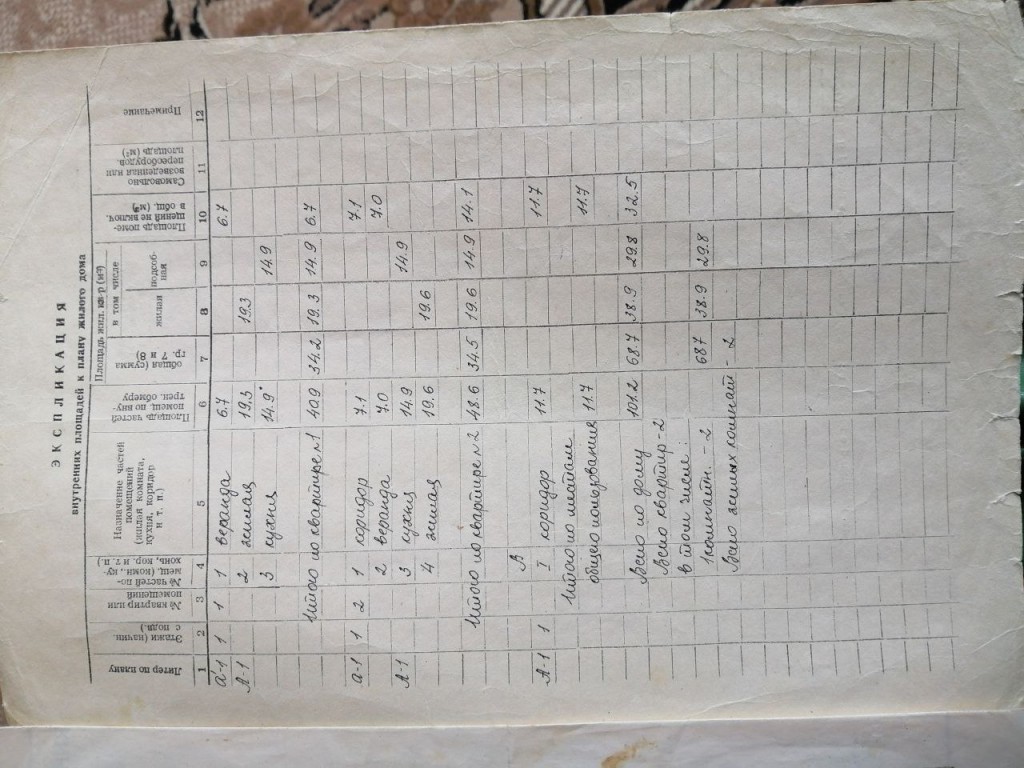 ЭКСПЛИКАЦИЯ
внутренних площадей к плану жилого дома
Литер по плану
Этажи (начин. с подв.)
№ квартир или помещений
№ частей помещ. (комн., кухонь, кор. и т. п.)
Назначение частей помещений (жилая комната, кухня, коридор и т. п.)
Площадь частей помещ. по внутрен. обмеру
Площадь жил. кв-р (м²)
общая (сумма гр. 7 и 8)
в том числе
жилая
подсобная
Площадь помещений не включ. в общ. (м²)
Самовольно возведенная или переоборудов. площадь (м²)
Примечание
1 2 3 4 5 6 7 8 9 10 11 12
а-1 1 1 1 веранда 6.7 6.7
А-1 2 жилая 19.3 19.3
3 кухня 14.9 14.9
Итого по квартире №1 40.9 34.2 19.3 14.9 6.7
а-1 1 2 1 коридор 7.1 7.1
2 веранда 7.0 7.0
А-1 3 кухня 14.9 14.9
4 жилая 19.6 19.6
Итого по квартире №2 48.6 34.5 19.6 14.9 14.1
В
А-1 1 I коридор 11.7 11.7
Итого по местам
общего пользования 11.7 11.7
Всего по дому 101.2 68.7 38.9 29.8 32.5
Всего квартир - 2
в том числе:
1 комнатн. - 2 68.7 38.9 29.8
Всего жилых комнат - 2